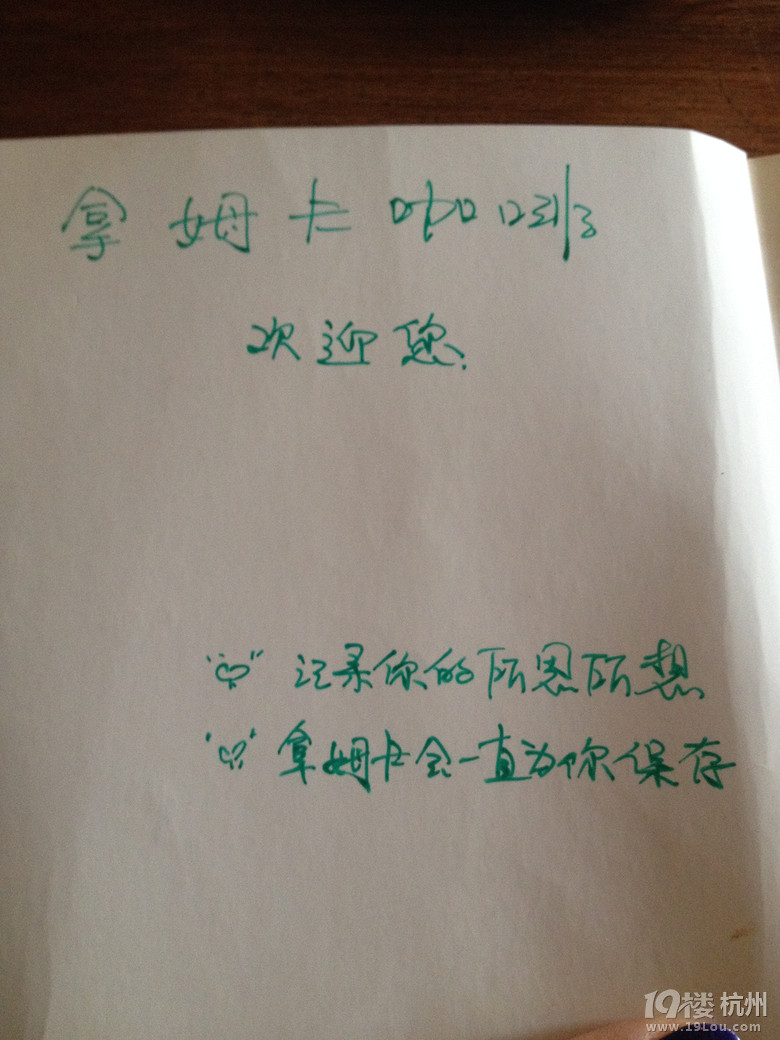 拿姆卡咖啡
欢迎您.
记录你的所思所想
拿姆卡会一直为你保存
19楼 杭州
www.19Lou.com